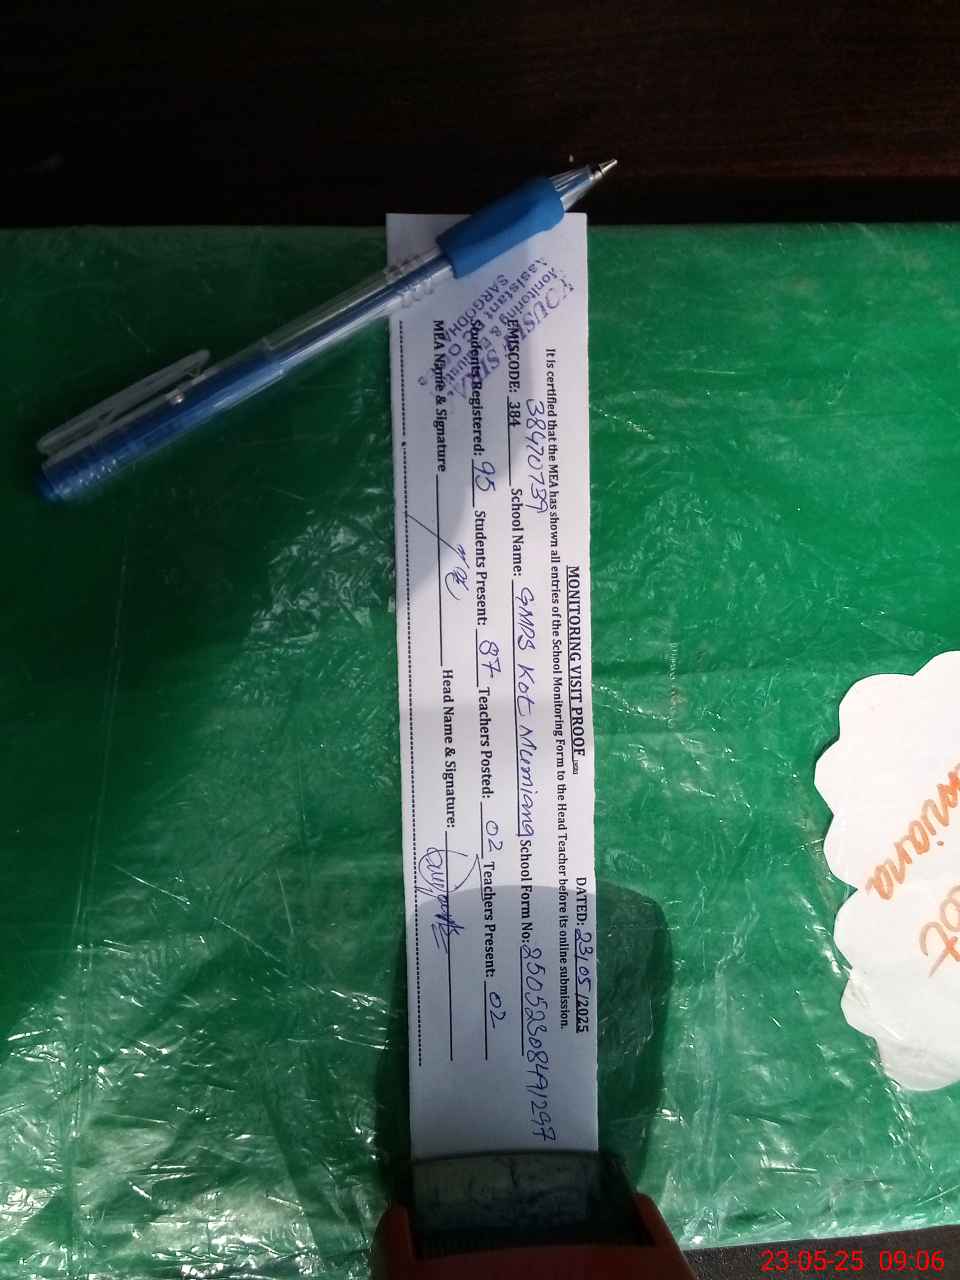 MONITORING VISIT PROOF
DATED: 23/05/2025
It is certified that the MEA has shown all entries of the School Monitoring Form to the Head Teacher before its online submission.
38470739
EMISCODE: 384 School Name: GMPS Kot Mumiana School Form No: 25052308491297
Students Registered: 95 Students Present: 87 Teachers Posted: 02 Teachers Present: 02
MEA Name & Signature Head Name & Signature:
Monitoring &
Assistant
SARGODHA
Kot
23-05-25 09:06